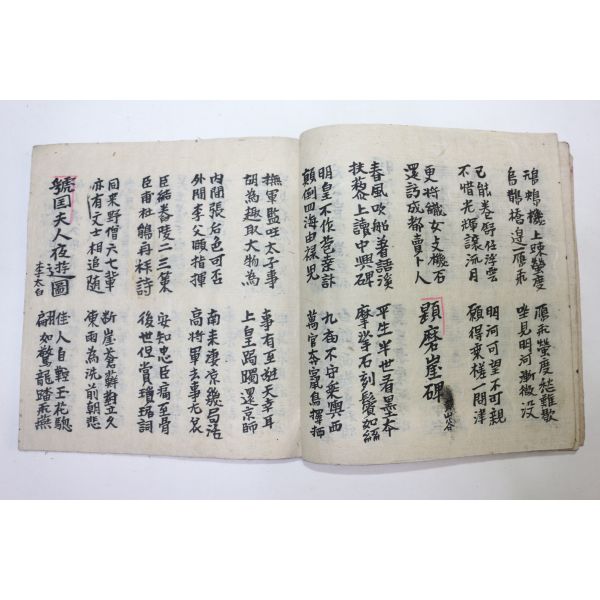 鴉鵲機上踈螢度
烏鵲橋邊一雁飛
雁飛螢度愁難歇
坐見明河漸微没
已能卷舒任浮雲
不惜光輝讓流月
明河可望不可親
願得乗槎一問津
更將織女支機石
還訪成都賣卜人
顯磨崖碑
山谷
春風吹船着語溪
扶藜上讀中興碑
平生半世看墨本
摩挲石刻鬢如絲
明皇不作苞桒計
顛倒四海由祿児
九廟不守乗輿西
萬官奔竄鳥擇栖
撫軍監国太子事
胡為趣取大物為
事有至難天幸耳
上皇跼躅還京師
内間張后色可否
外間李父頤指揮
南来凄凉幾苟活
高將軍去事尤危
臣結舂陵二三策
臣甫杜鵑再拝詩
安知忠臣痛至骨
後世但賞瓊琚詞
同来野僧六七輩
亦有文士相追隨
斷崖蒼蘚對立久
凍雨為洗前朝悲
虢国夫人夜遊圖
李太白
佳人自鞚玉花驄
翩如驚龍踏飛燕